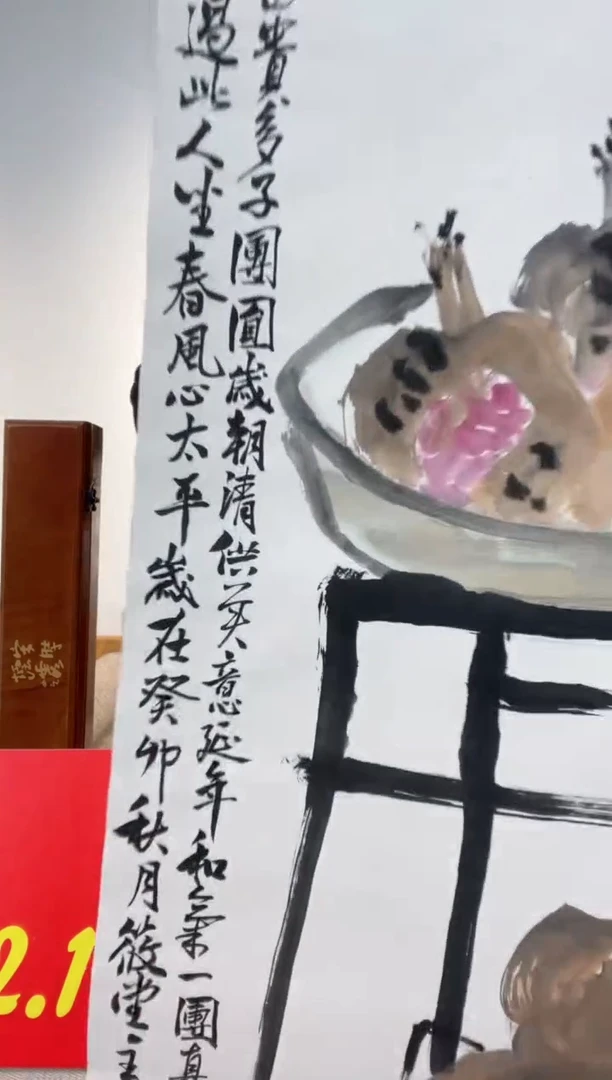 貴多子團圓歲朝清供美意延年和气一團真
過此人坐春風心太平歲在癸卯秋月筱堂主
2.1